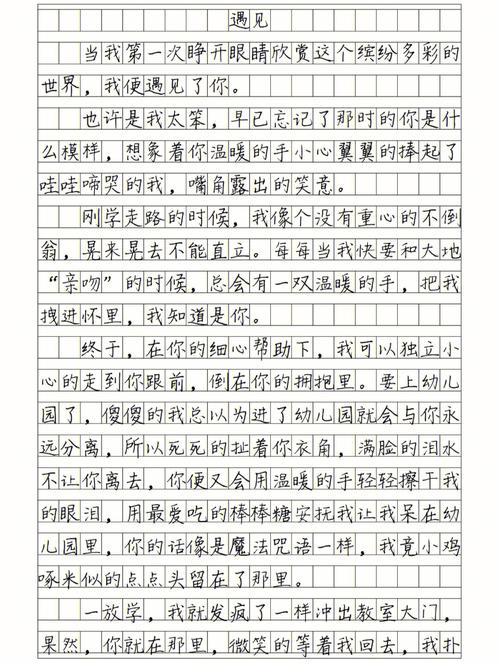 遇见
当我第一次睁开眼睛欣赏这个缤纷多彩的
世界，我便遇见了你。
也许是我太笨，早已忘记了那时的你是什
么模样，想象着你温暖的手小心翼翼的捧起了
哇哇啼哭的我，嘴角露出的笑意。
刚学走路的时候，我像个没有重心的不倒
翁，晃来晃去不能直立。每每当我快要和大地
“亲吻”的时候，总会有一双温暖的手，把我
拽进怀里，我知道是你。
终于，在你的细心帮助下，我可以独立小
心的走到你跟前，倒在你的拥抱里。要上幼儿
园了，傻傻的我总以为进了幼儿园就会与你永
远分离，所以死死的扯着你衣角，满脸的泪水
不让你离去，你便又会用温暖的手轻轻擦干我
的眼泪，用最爱吃的棒棒糖安抚我让我呆在幼
儿园里，你的话像是魔法咒语一样，我竟小鸡
啄米似的点点头留在了那里。
一放学，我就发疯了一样冲出教室大门，
果然，你就在那里，微笑的等着我回去，我扑